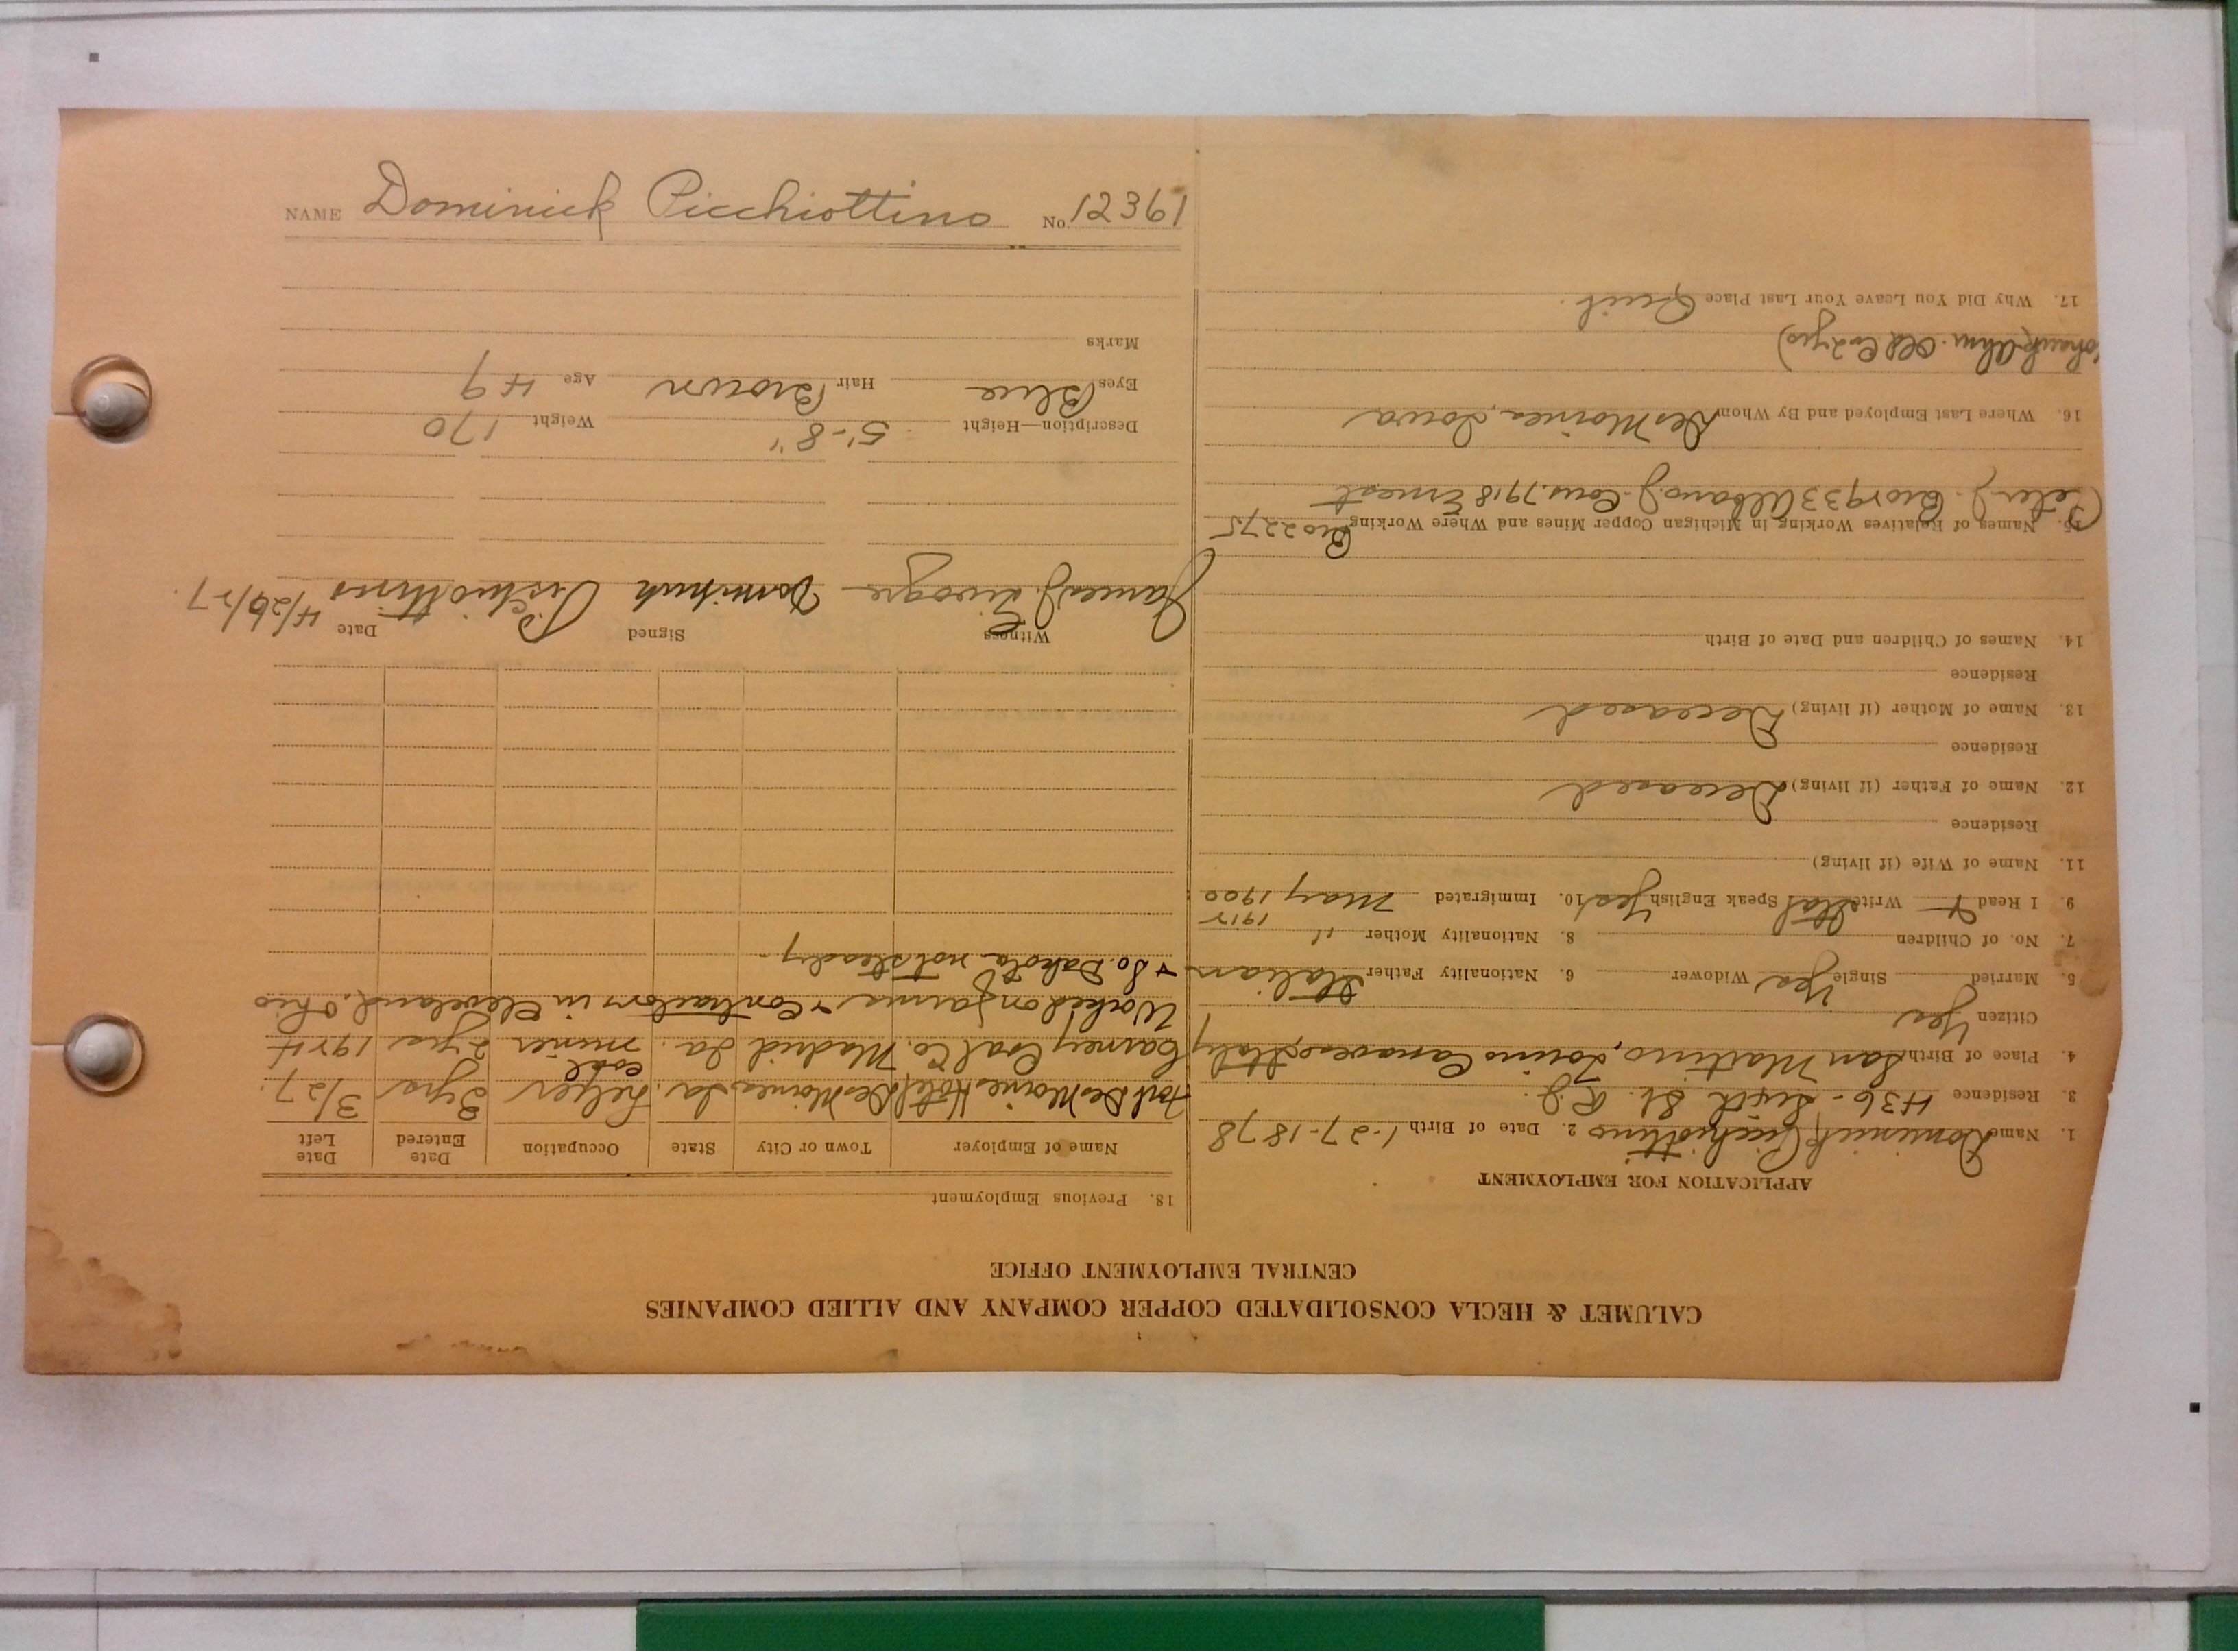 NAME Dominick Picchiottino No. 12361
CALUMET & HECLA CONSOLIDATED COPPER COMPANY AND ALLIED COMPANIES
CENTRAL EMPLOYMENT OFFICE
APPLICATION FOR EMPLOYMENT
1. Name Dominick Picchiottino 2. Date of Birth 1-27-1878
3. Residence 436- Sixth St.
4. Place of Birth San Martino, Torino Canavese, Italy
Citizen Yes
5. Married Single Yes Widower 6. Nationality Father Italian
7. No. of Children 8. Nationality Mother "
1912
9. I Read & Write Ital Speak English Yes 10. Immigrated May 1900
11. Name of Wife (if living)
Residence
12. Name of Father (if living) Deceased
Residence
13. Name of Mother (if living) Deceased
Residence
14. Names of Children and Date of Birth
15. Names of Relatives Working in Michigan Copper Mines and Where Working Bro 2275
Peter J. Bro 1933 Albano J. Cous. 7918 Ernest
16. Where Last Employed and By Whom Des Moines, Iowa
17. Why Did You Leave Your Last Place Quit.
18. Previous Employment
Name of Employer Town or City State Occupation Date Entered Date Left
Fort Des Moines Hotel Des Moines Ia. helper 3 yrs 3/27.
Carney Coal Co. Madrid Ia. coal miner 2 yrs 1924
Worked on farms & Contractors in Cleveland, Ohio
& So. Dakota not steady.
Witness Signed Date 4/26/27.
James J. Dominick Pichiottino
Description—Height 5'-8" Weight 170
Eyes Blue Hair Brown Age 49
Marks